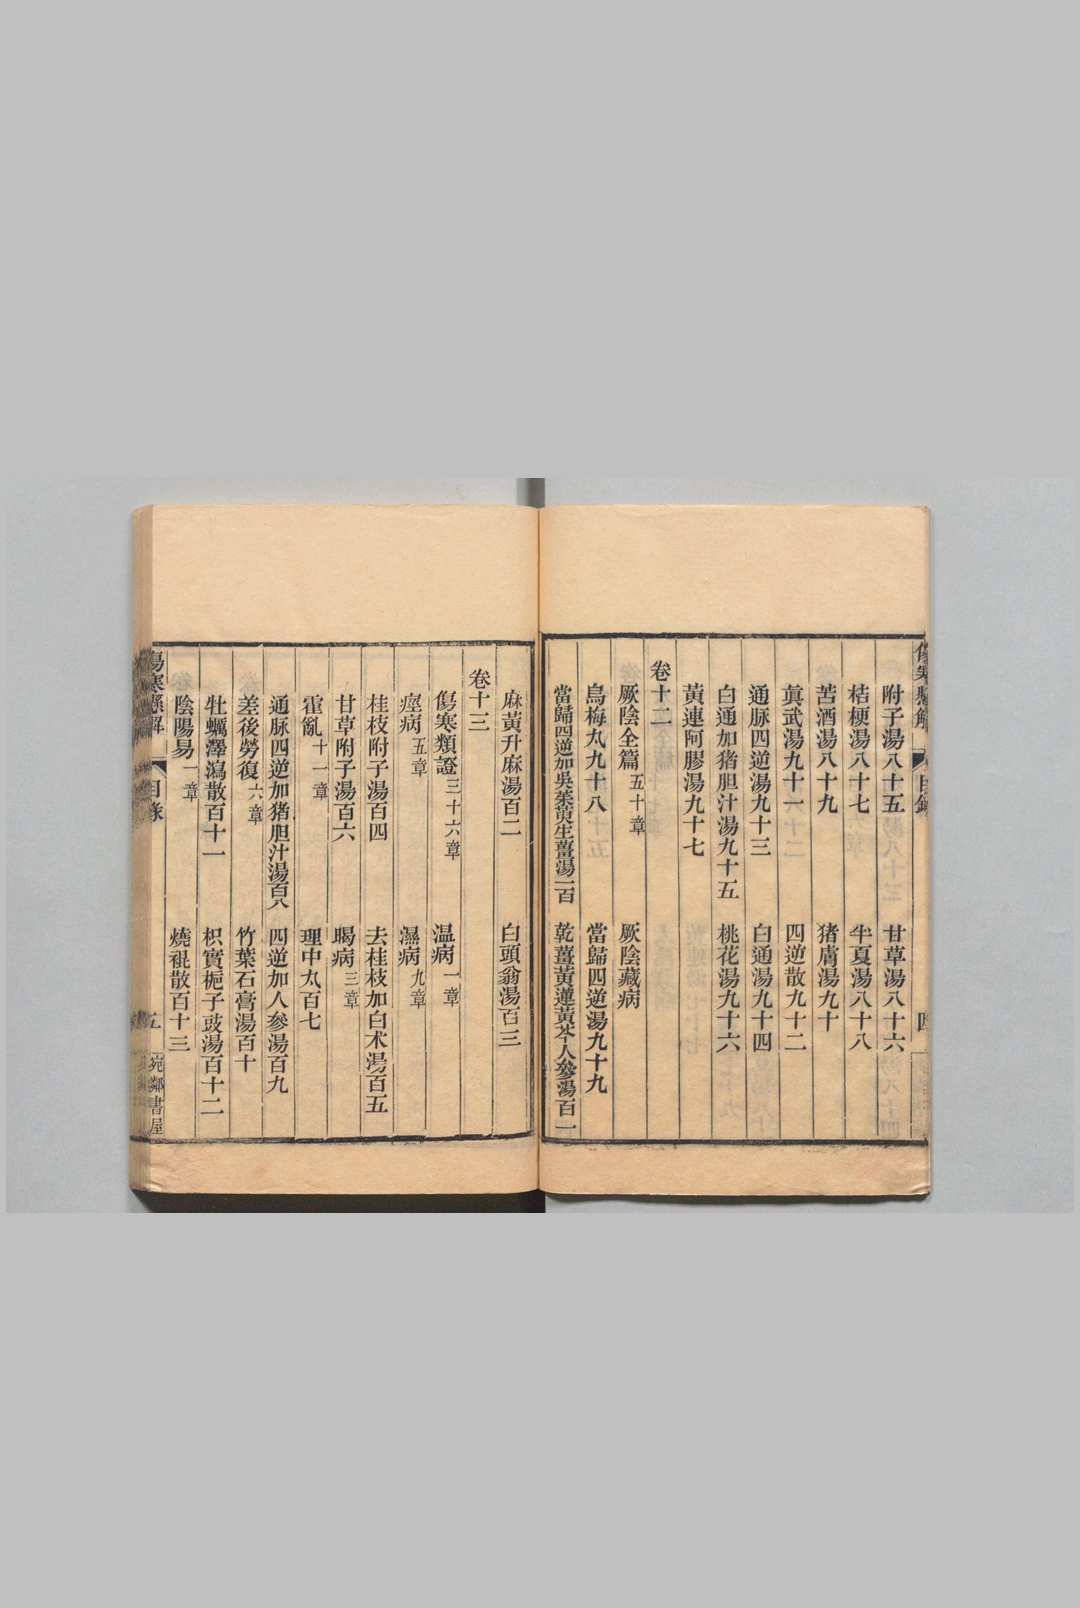 附子湯八十五 甘草湯八十六
桔梗湯八十七 半夏湯八十八
苦酒湯八十九 猪膚湯九十
眞武湯九十一 四逆散九十二
通脉四逆湯九十三 白通湯九十四
白通加猪胆汁湯九十五 桃花湯九十六
黃連阿膠湯九十七
卷十二
厥陰全篇五十章 厥陰藏病
烏梅丸九十八 當歸四逆湯九十九
當歸四逆加吳茱萸生薑湯一百 乾薑黃連黃芩人參湯百一
麻黃升麻湯百二 白頭翁湯百三
卷十三
傷寒類證三十六章 温病一章
痙病五章 濕病九章
桂枝附子湯百四 去桂枝加白术湯百五
甘草附子湯百六 暍病三章
霍亂十一章 理中丸百七
通脉四逆加猪胆汁湯百八 四逆加人參湯百九
差後勞復六章 竹葉石膏湯百十
牡蠣澤瀉散百十一 枳實梔子豉湯百十二
陰陽易一章 燒裩散百十三
傷寒懸解 目錄 五 宛鄰書屋